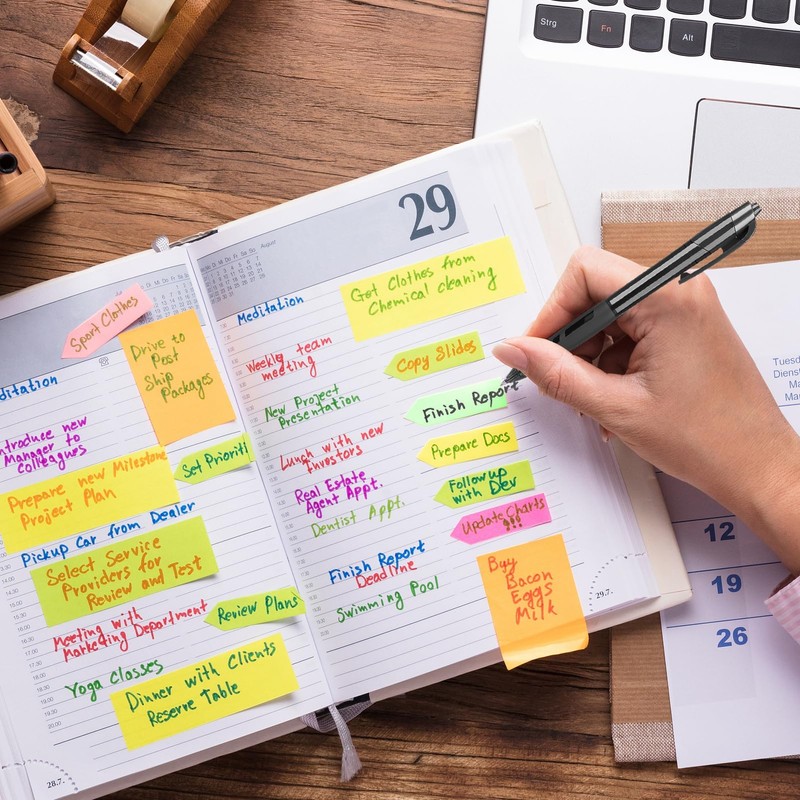 Strg
Fn
Alt
Sport Clothes
Drive to
Post
Ship
Packages
ditation
ntroduce new
Manager to
colleagues
Set Prioriti
Prepare new Milestone
Project Plan
Pickup Car from Dealer
Select Service
Providers for
Review and Test
Meeting with
Marketing Department
Review Plans
Yoga Classes
Dinner with Clients
Reserve Table
28.7.
August
29
Meditation
Get Clothes from
Chemical cleaning
Weekly team
meeting
Copy Slides
New Project
Presentation
Finish Report
Lunch with new
Investors
Prepare Docs
Real Estate
Agent Appt.
Follow up
with Dev
Dentist Appt.
Update Charts
!!!
Finish Report
Deadline
Swimming Pool
Buy
Bacon
Eggs
Milk
29.7.
Tuesd
Dienst
Ma
Ma
12
19
26